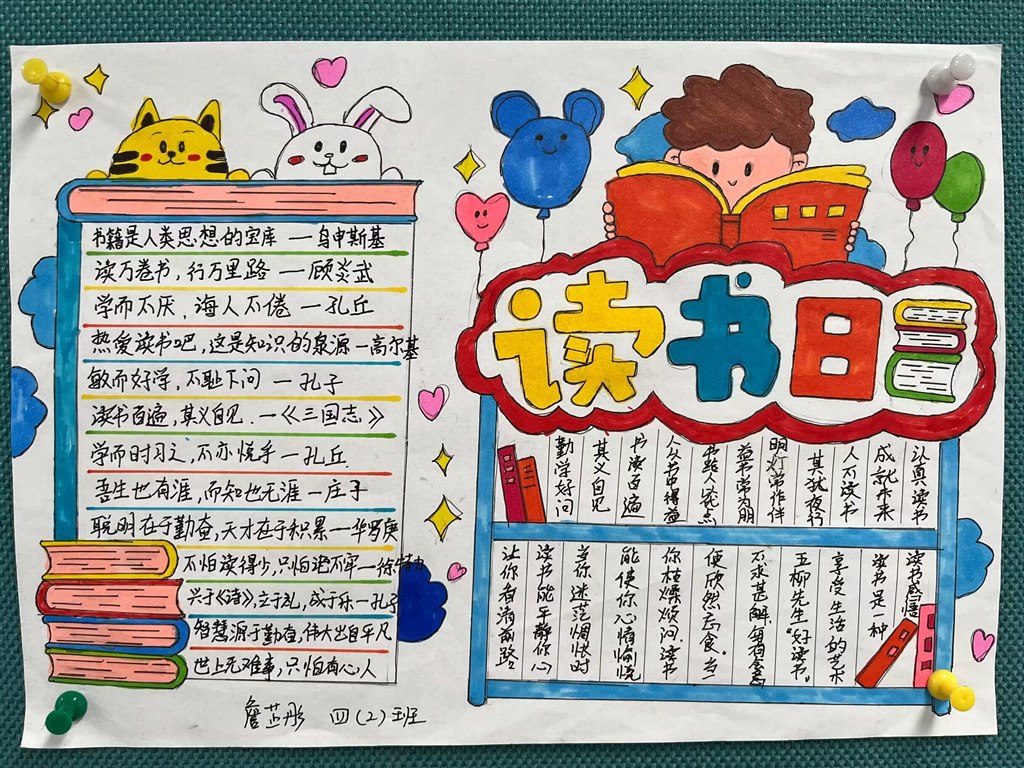 书籍是人类思想的宝库 — 乌申斯基
读万卷书，行万里路 — 顾炎武
学而不厌，诲人不倦 — 孔丘
热爱读书吧，这是知识的泉源 — 高尔基
敏而好学，不耻下问 — 孔子
读书百遍，其义自见. —《三国志》
学而时习之，不亦悦乎 — 孔丘.
吾生也有涯，而知也无涯 — 庄子
聪明在于勤奋，天才在于积累 — 华罗庚
不怕读得少，只怕记不牢 — 徐特力
兴于《诗》，立于礼，成于乐 — 孔子
智慧源于勤奋，伟大出自平凡
世上无难事，只怕有心人
詹芷彤 四（2）班
读书日
认真读书
成就未来
人不读书
其犹夜行
明灯常作伴
益书常为朋
书给人以光点
人从书中得益
书读百遍
其义自见
勤学好问
读书感悟
读书是一种
享受生活的艺术
五柳先生“好读书。
不求甚解，每有会意
便欣然忘食。当
你枯燥烦闷.读书
能使你心情愉悦
当你迷茫惆怅时
读书能平静你心
让你看清前路